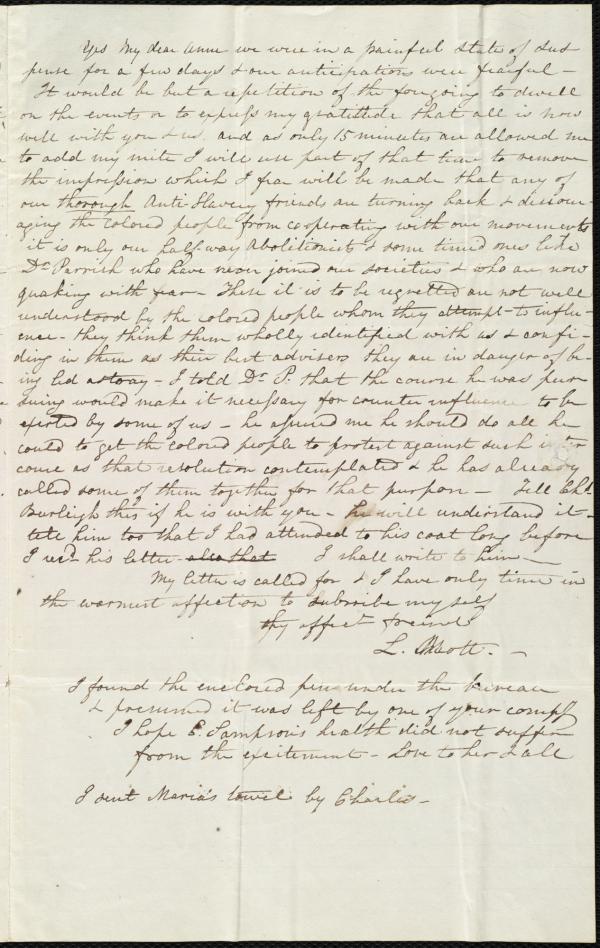 Yes My dear Anne we were in a painful state of sus
pense for a few days & our anticipations were fearful –
It would be but a repetition of the foregoing to dwell
on the events or to express my gratitude that all is now
well with you & us, and as only 15 minutes are allowed me
to add my mite I will use part of that time to remove
the impression which I fear will be made that any of
our thorough Anti-Slavery friends are turning back & discour-
aging the colored people from cooperating with our movements
it is only our half-way Abolitionists & some timid ones like
Dr. Parrish who have never joined our societies & who are now
quaking with fear – These it is to be regretted are not well
understood by the colored people whom they attempt to influ-
ence – they think them wholly identified with us & confi-
ding in them as their best advisers they are in danger of be-
ing led astray – I told Dr. P. that the course he was pur
suing would make it necessary for counter influence to be
exerted by some of us – he assured me he should do all he
could to get the colored people to protest against such inter
course as that resolution contemplated & he has already
called some of them together for that purpose – Tell Chs.
Burleigh this if he is with you – he will understand it –
tell him too that I had attended to his coat long before
I recd. his letter also that I shall write to him –
My letter is called for & I have only time in
the warmest affection to subsribe myself
thy affect. freind
L. Mott. –
I found the enclosed pin under the bureau
& presumed it was left by one of your compy
I hope E. Sampson's health did not suffer
from the excitement – Love to her & all
I sent Maria's towel by Charles –